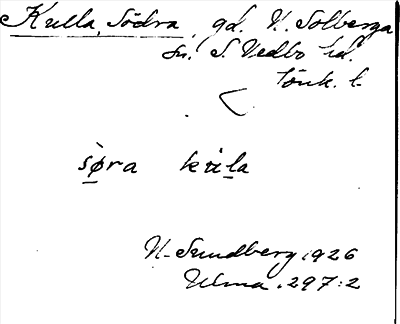 Kulla, Södra, gd. N. Solberga
sn. S. Vedbo hd.
Jönk. l.
sø̀ra kula
N. Sundberg 1926
Ulma 297:2